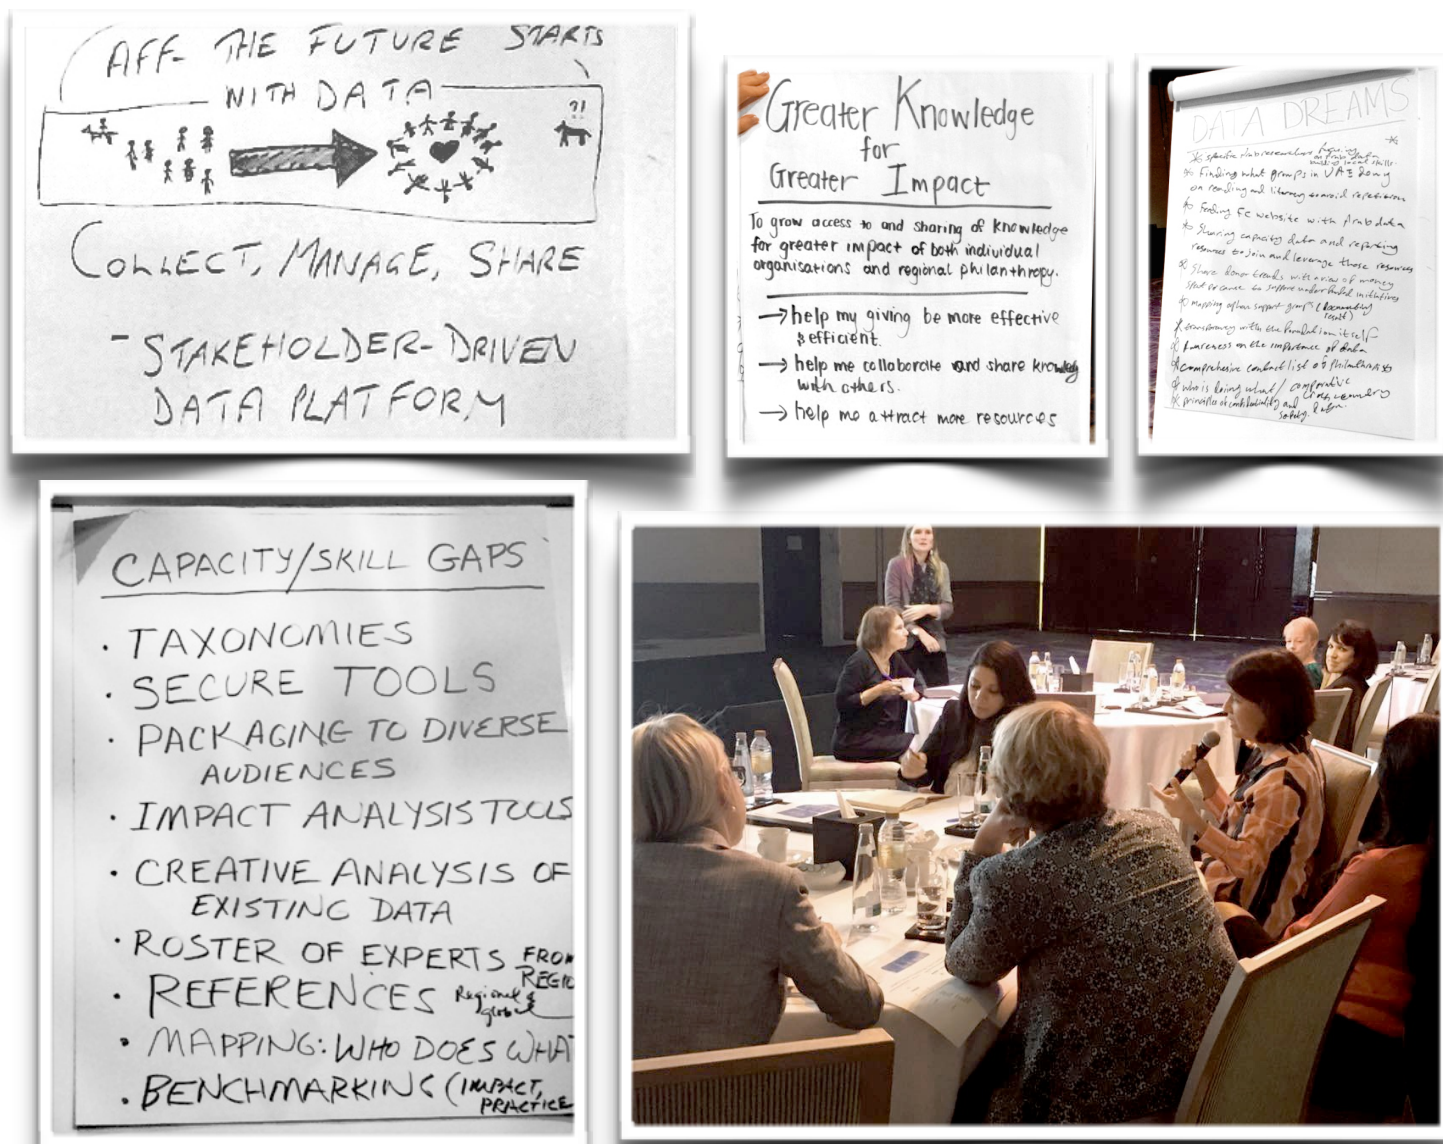 AFF- THE FUTURE STARTS
WITH DATA
?!
COLLECT, MANAGE, SHARE
- STAKEHOLDER-DRIVEN
DATA PLATFORM
Greater Knowledge
for
Greater Impact
To grow access to and sharing of knowledge
for greater impact of both individual
organisations and regional philanthropy.
→ help my giving be more effective
& efficient.
→ help me collaborate and share knowledg
with others.
→ help me attract more resources
DATA DREAMS
* specific Arab researchers
* Finding what groups in UAE doing
on reading and literacy to avoid repetition
* Feeding FC website with Arab data
* Sharing capacity data and reporting
resources to join and leverage those resources
* Share donor trends with a view of money
to support underfunded initiatives
* mapping of support groups
* transparency with the foundation itself
* Awareness on the importance of data
* comprehensive contact list of philanthropists
* who is doing what / comparative
* principles of confidentiality and
safety
CAPACITY/SKILL GAPS
· TAXONOMIES
· SECURE TOOLS
· PACKAGING TO DIVERSE
AUDIENCES
· IMPACT ANALYSIS TOOLS
· CREATIVE ANALYSIS OF
EXISTING DATA
· ROSTER OF EXPERTS FROM
REGIO
· REFERENCES Regional &
global
· MAPPING: WHO DOES WHAT
· BENCHMARKING (IMPACT,
PRACTICE